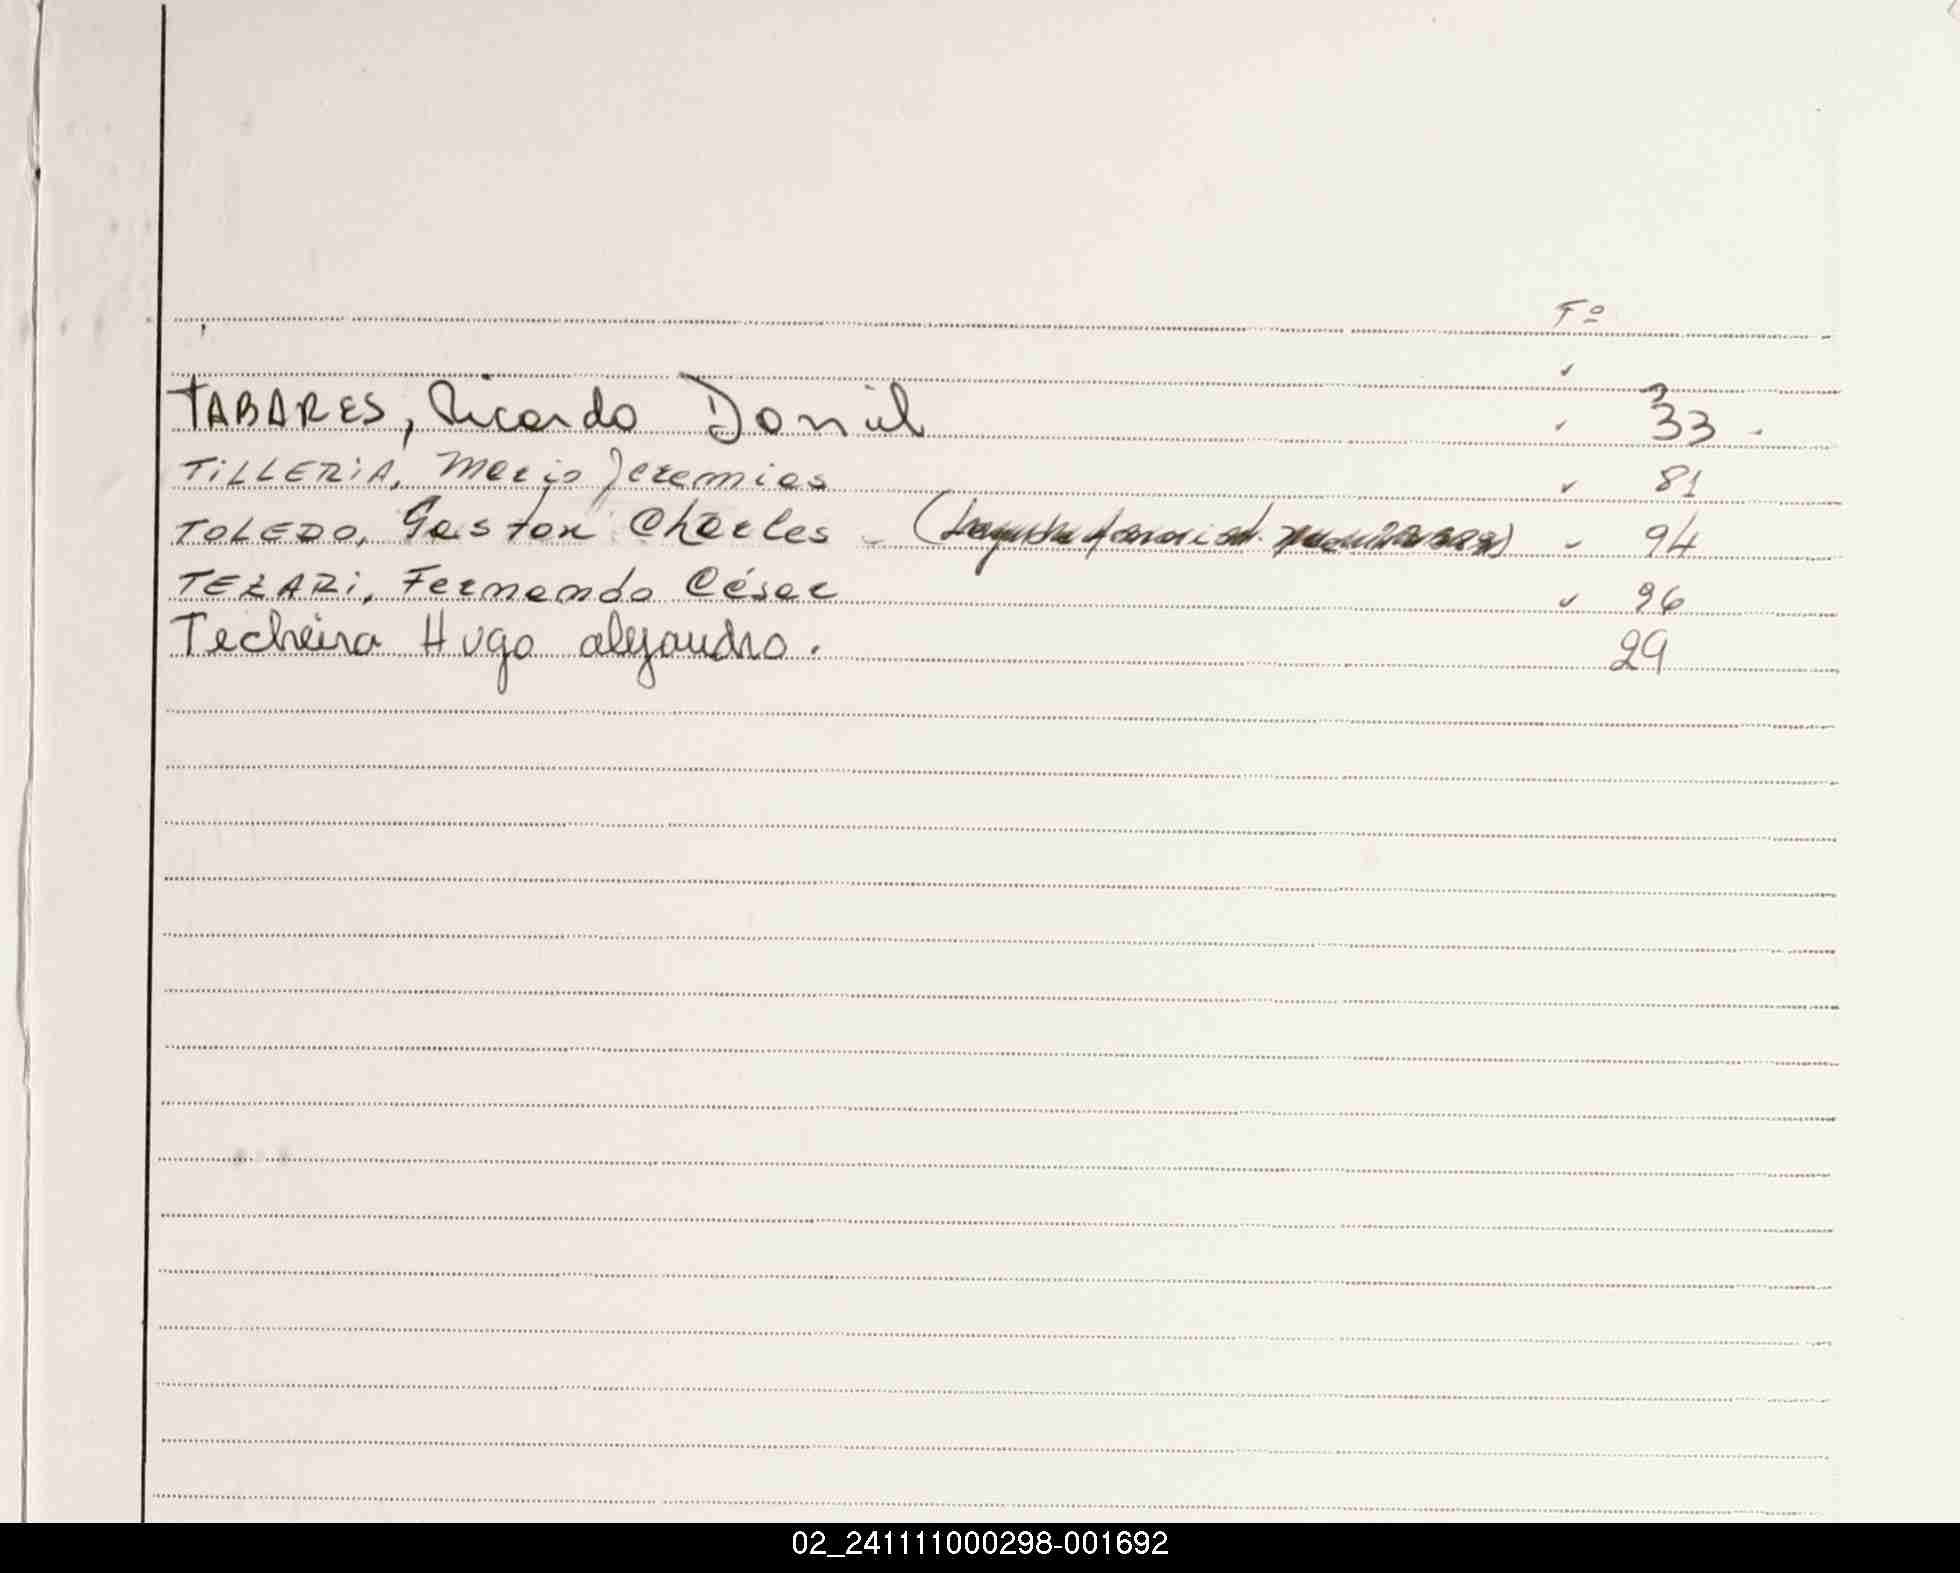 Fº
✓
TABARES, Ricardo Daniel ✓ 33 -
TiLLERiA, Mario Jeremias ✓ 81
TOLEDO, Gaston Charles - ✓ 94
TEZARi, Fernando César ✓ 96
Techeira Hugo alejandro. 29
02_241111000298-001692